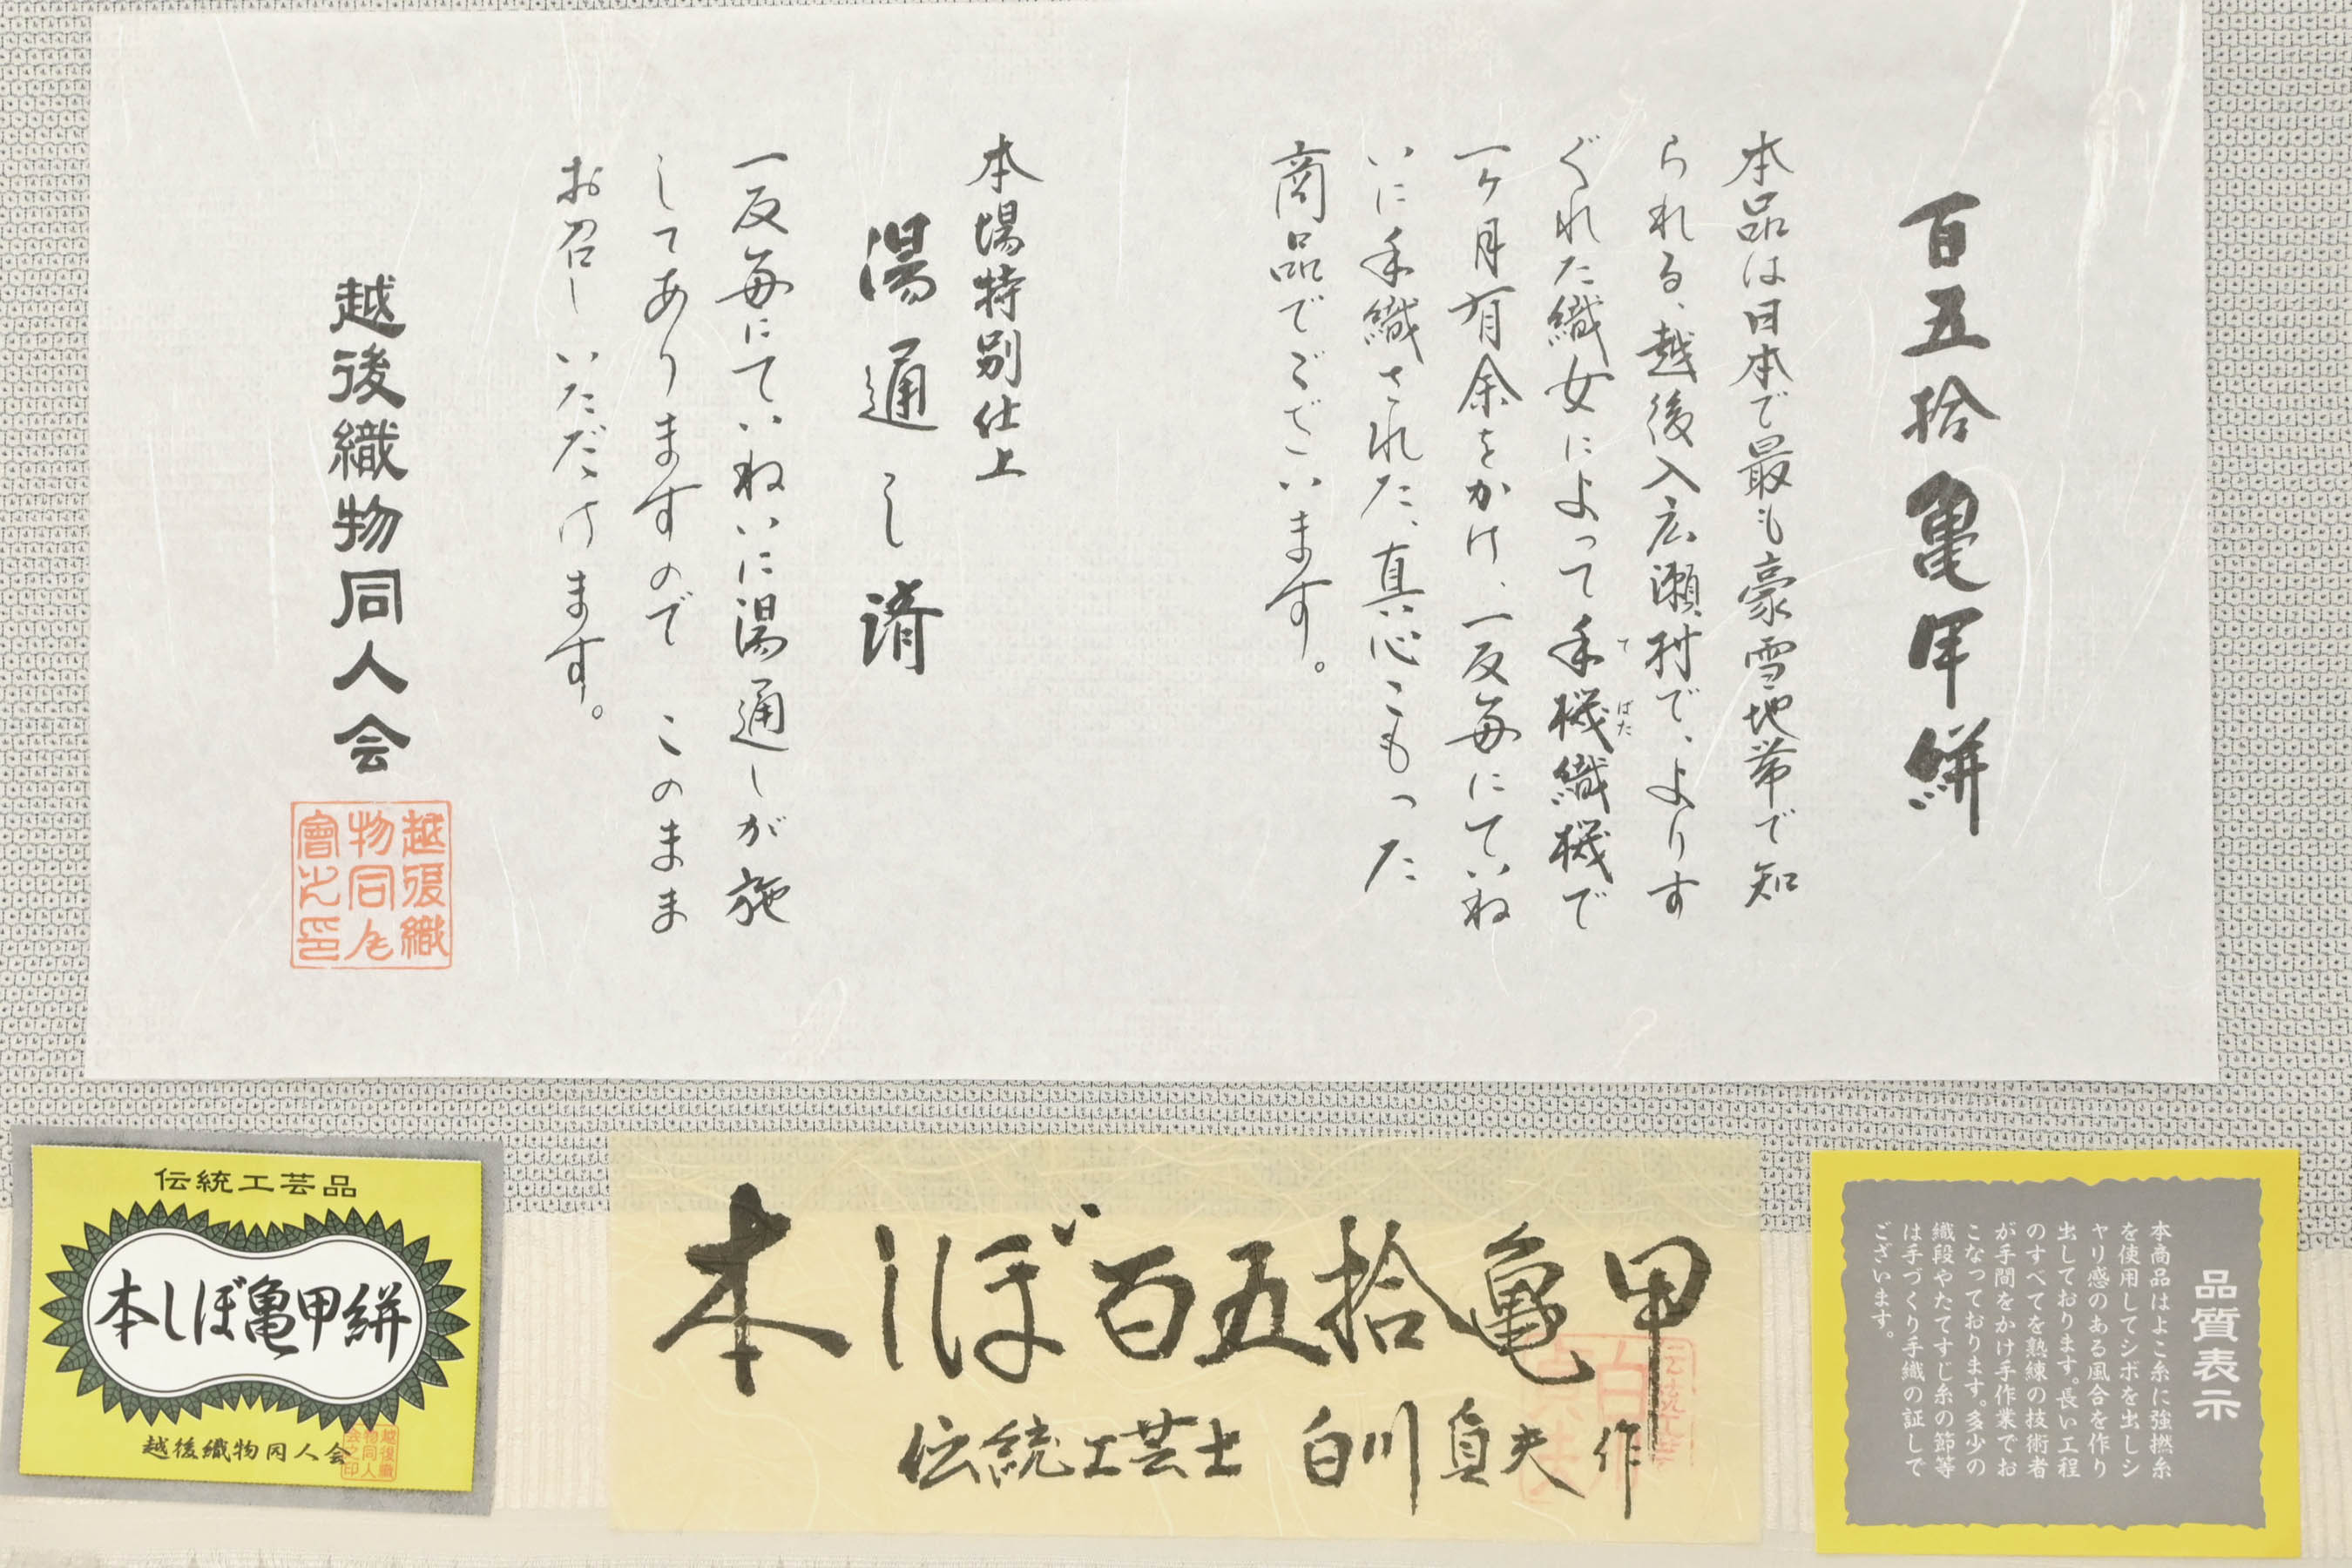 百五拾亀甲絣
本品は日本で最も豪雪地帯で知
られる、越後入広瀬村で、よりす
ぐれた織女によって手機織機で
てばた
一ヶ月有余をかけ、一反毎にていね
いに手織された、真心こもった
商品でございます。
本場特別仕上
湯通し済
一反毎にていねいに湯通しが施
してありますので このまま
お召しいただけます。
越後織物同人会
越後織
物同人
會之印
伝統工芸品
本しぼ亀甲絣
越後織物同人会
越後織
物同人
会之印
本しぼ百五拾亀甲
伝統工芸士 白川貞夫作
品質表示
本商品はよこ糸に強撚糸
を使用してシボを出しシ
ャリ感のある風合を作り
出しております。長い工程
のすべてを熟練の技術者
が手間をかけ手作業でお
こなっております。多少の
織段やたてすじ糸の節等
は手づくり手織の証しで
ございます。